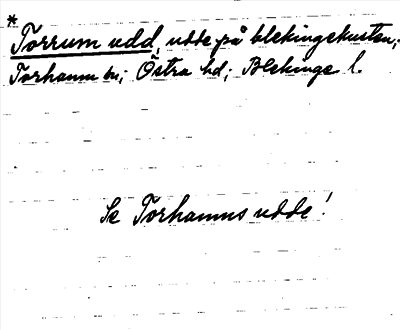 *
Torrum udd, udde på blekingekusten,
Torhamn sn; Östra hd; Blekinge l.
Se Torhamns udde!